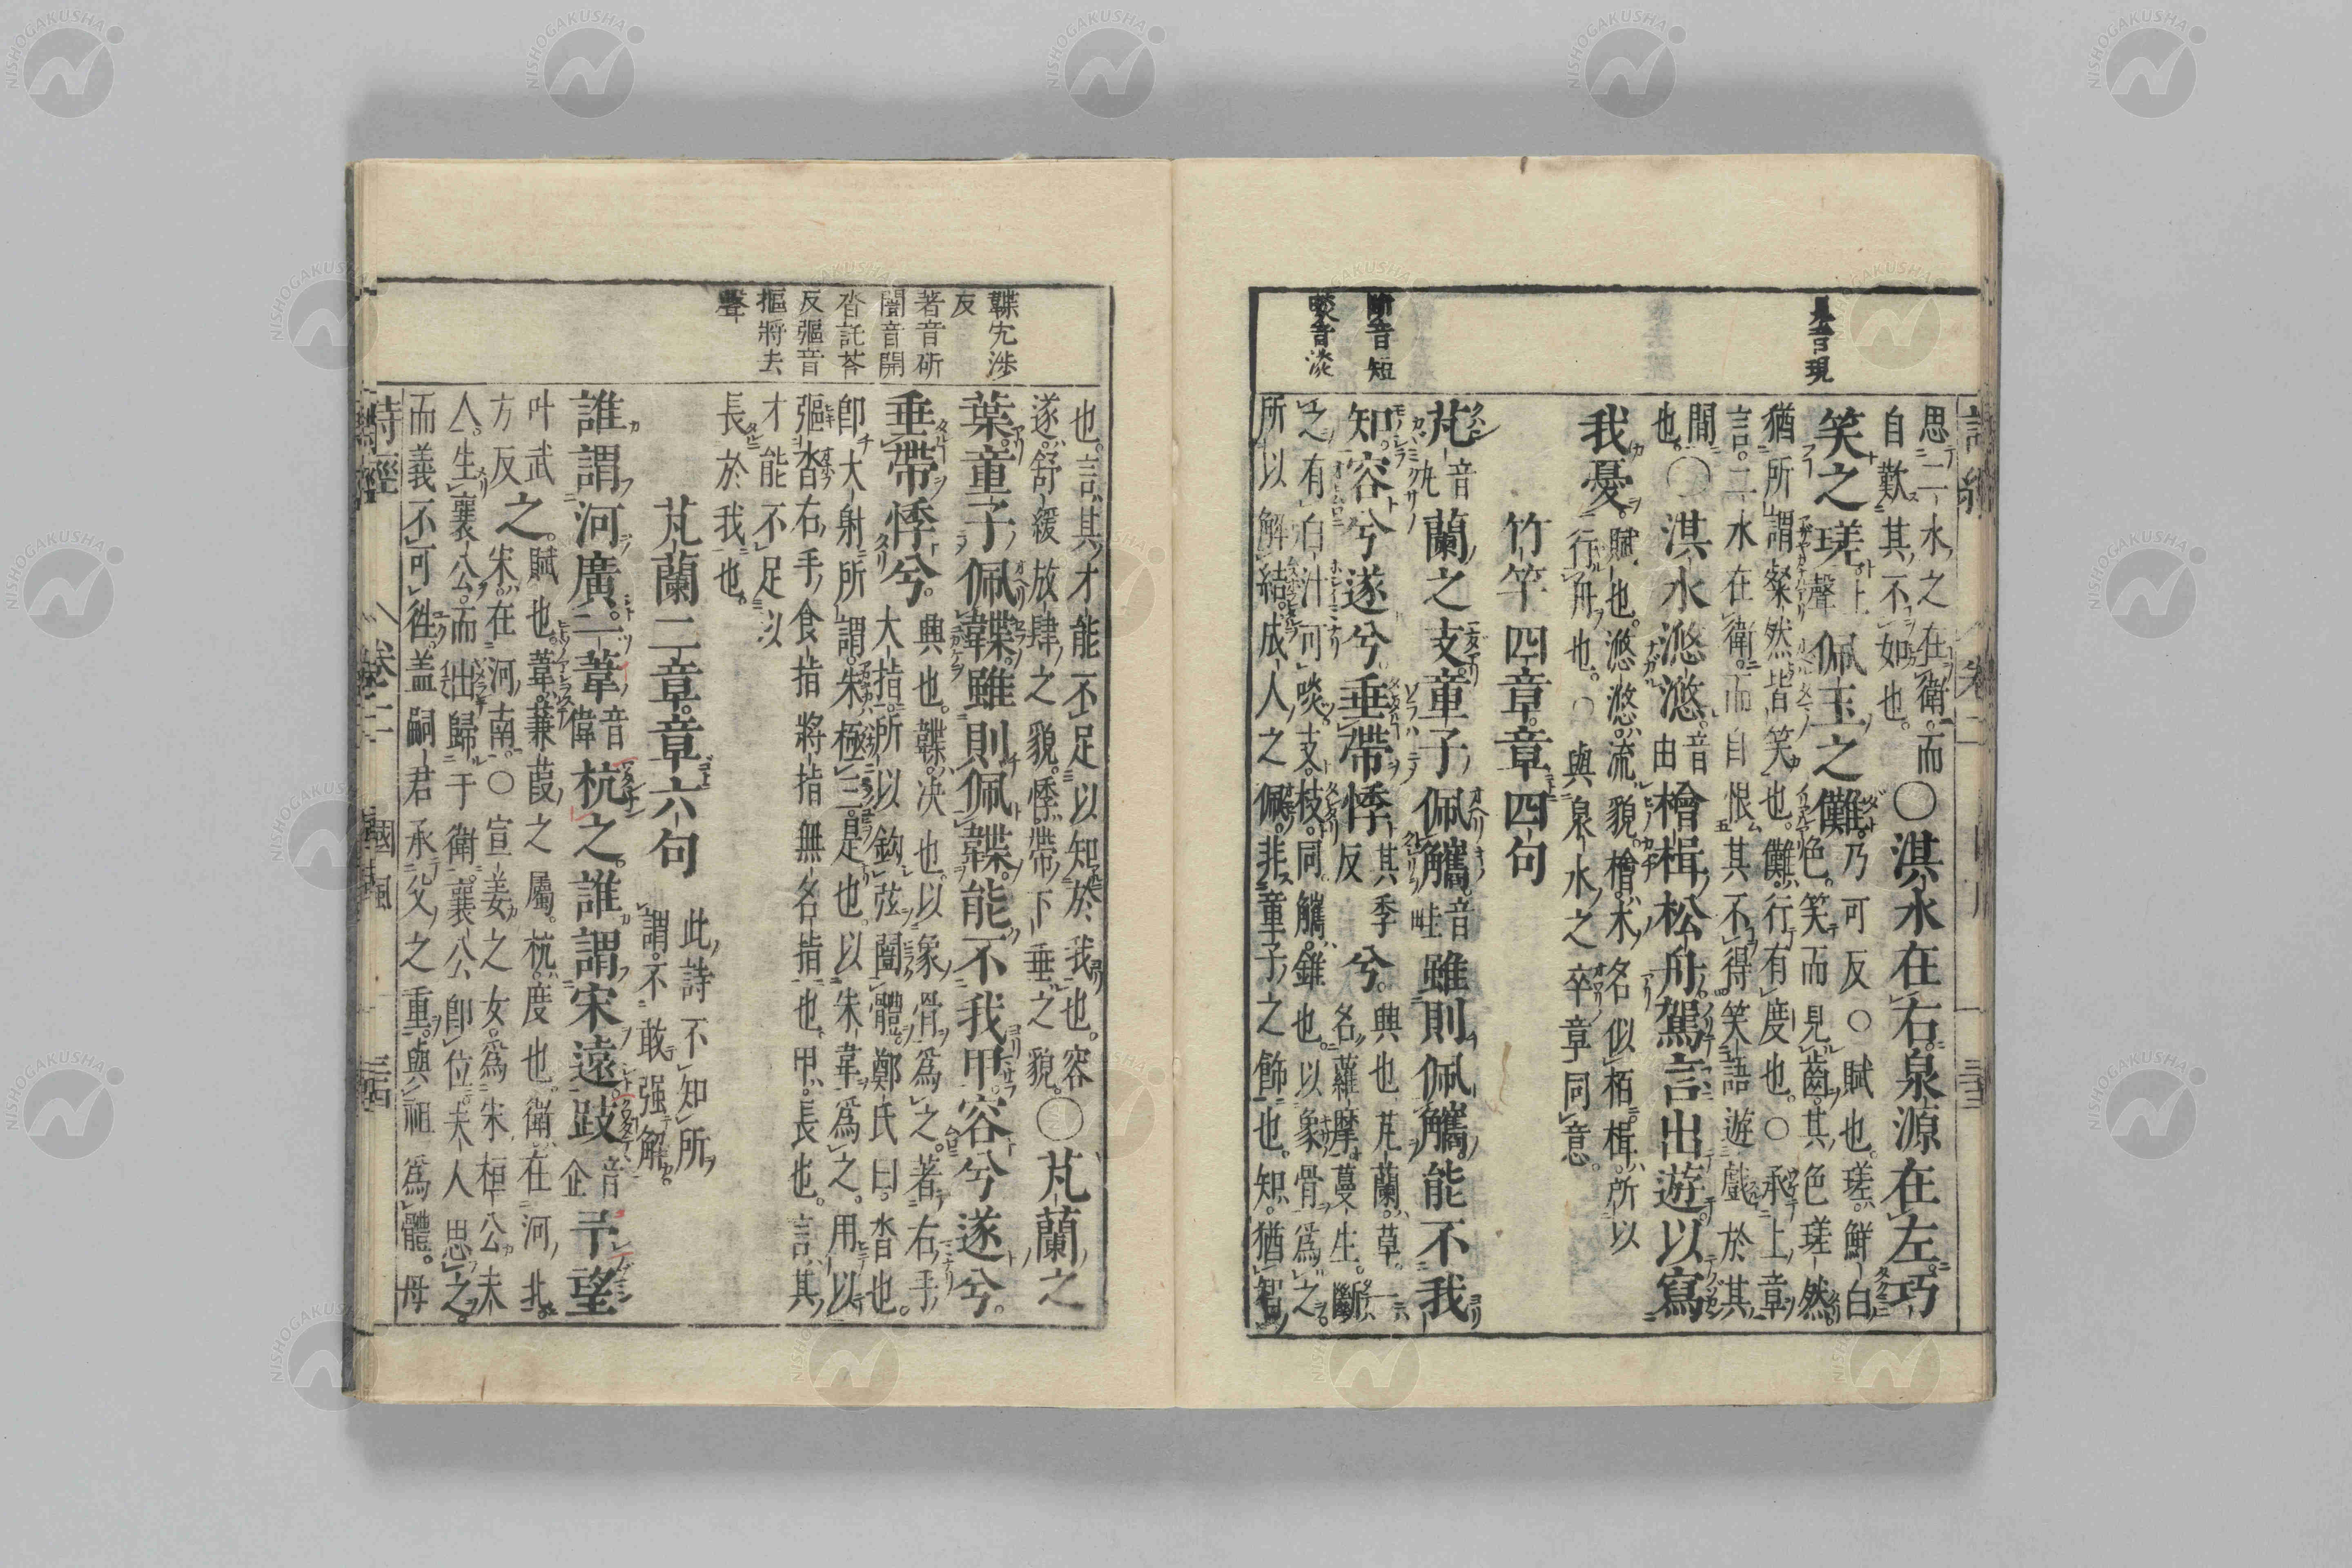 見音現
斷音短
啖音淡
思二水之在衛而
自歎其不如也。
○淇水在右泉源在左。巧
笑之瑳上聲佩玉之儺。乃可反○賦也瑳鮮白
色。笑而見齒其色瑳然
猶所謂粲然皆笑也。儺行有度也。○承上章
言二水在衛。而自恨其不得笑語遊戲於其
間
也。
○淇水滺滺音由檜楫松舟駕言出遊以寫
我憂。賦也。滺滺流貌檜木名似栢楫所以
行舟也。○與泉水之卒章同意。
竹竿四章章四句
芄音丸蘭之支童子佩觿。音畦雖則佩觿能不我
知。容兮遂兮垂帶悸其季反兮。興也芄蘭草。一
名蘿摩蔓生。斷
之有白汁可啖支枝同觿錐也以象骨爲之
所以解結。成人之佩非童子之飾也。知猶智
韘先渉
反
著音斫
闓音開
沓託荅
反彄音
摳將去
聲
也。言其才能不足以知於我也。容
遂舒緩放肆之貌。悸帶下垂之貌。
○芄蘭之
葉。童子佩韘。雖則佩韘能不我甲。容兮遂兮。
垂帶悸兮。興也。韘決也。以象骨爲之。著右手
大指。所以鉤弦闓體。鄭氏曰。沓也。
卽大射所謂朱極三是也。以朱韋爲之。用以
彄沓右手食指將指無名指也甲長也。言其
才能不足以
長於我也。
芄蘭二章章六句
此詩不知所
謂不敢强解。
誰謂河廣。一葦音偉杭之。誰謂宋遠。跂音企予望
叶武
方反
之。
賦也。葦蒹葭之屬。杭度也。衛在河北
宋在河南。○宣姜之女爲宋桓公夫
人。生襄公。而出歸于衛襄公卽位夫人思之。
而義不可往。盖嗣君承父之重。與祖爲體。母
詩經 卷二 國風 三四